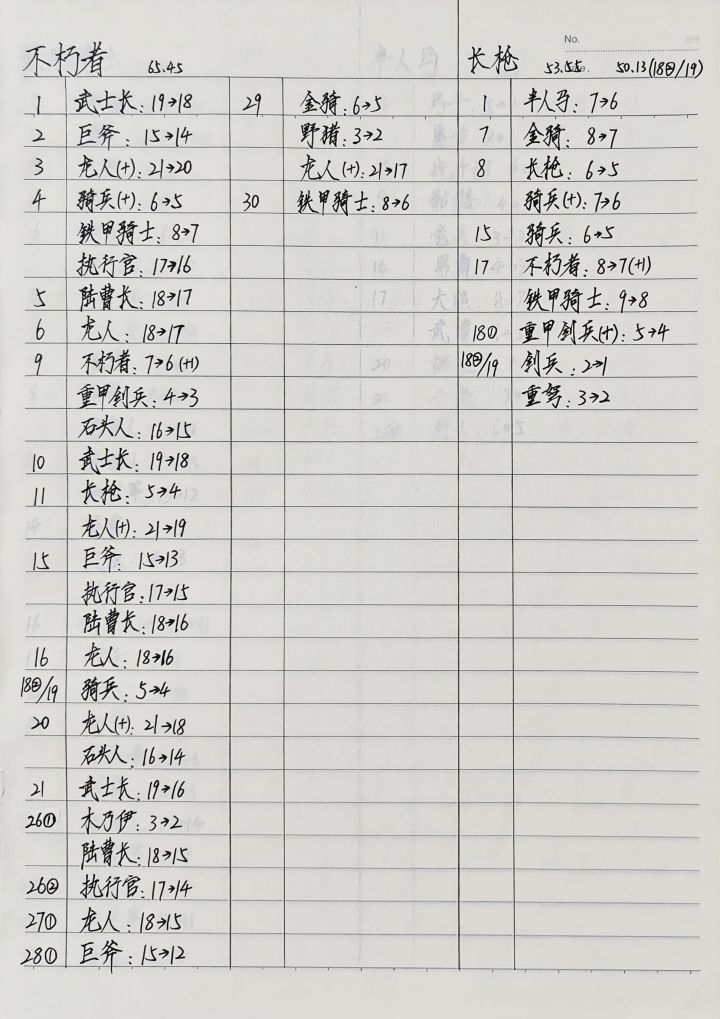 No.
不朽者 65.45
1 武士长: 19→18
2 巨斧: 15→14
3 龙人(+): 21→20
4 骑兵(+): 6→5
铁甲骑士: 8→7
执行官: 17→16
5 陆曹长: 18→17
6 龙人: 18→17
9 不朽者: 7→6 (+1)
重甲剑兵: 4→3
石头人: 16→15
10 武士长: 19→18
11 长枪: 5→4
龙人(+): 21→19
15 巨斧: 15→13
执行官: 17→15
陆曹长: 18→16
16 龙人: 18→16
18②/19 骑兵: 5→4
20 龙人(+): 21→18
石头人: 16→14
21 武士长: 19→16
26① 木乃伊: 3→2
陆曹长: 18→15
26② 执行官: 17→14
27① 龙人: 18→15
28① 巨斧: 15→12
29 金骑: 6→5
野猪: 3→2
龙人(+): 21→17
30 铁甲骑士: 8→6
长枪 53.55 50.13(18②/19)
1 半人马: 7→6
7 金骑: 8→7
8 长枪: 6→5
骑兵(+): 7→6
15 骑兵: 6→5
17 不朽者: 8→7(+1)
铁甲骑士: 9→8
18① 重甲剑兵(+): 5→4
18②/19 剑兵: 2→1
重弩: 3→2